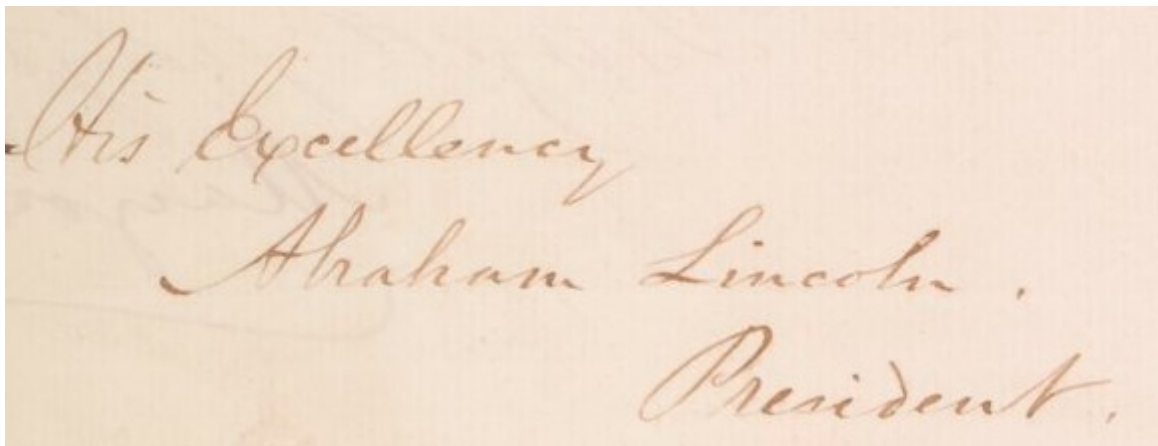 His Excellency
Abraham Lincoln.
President.